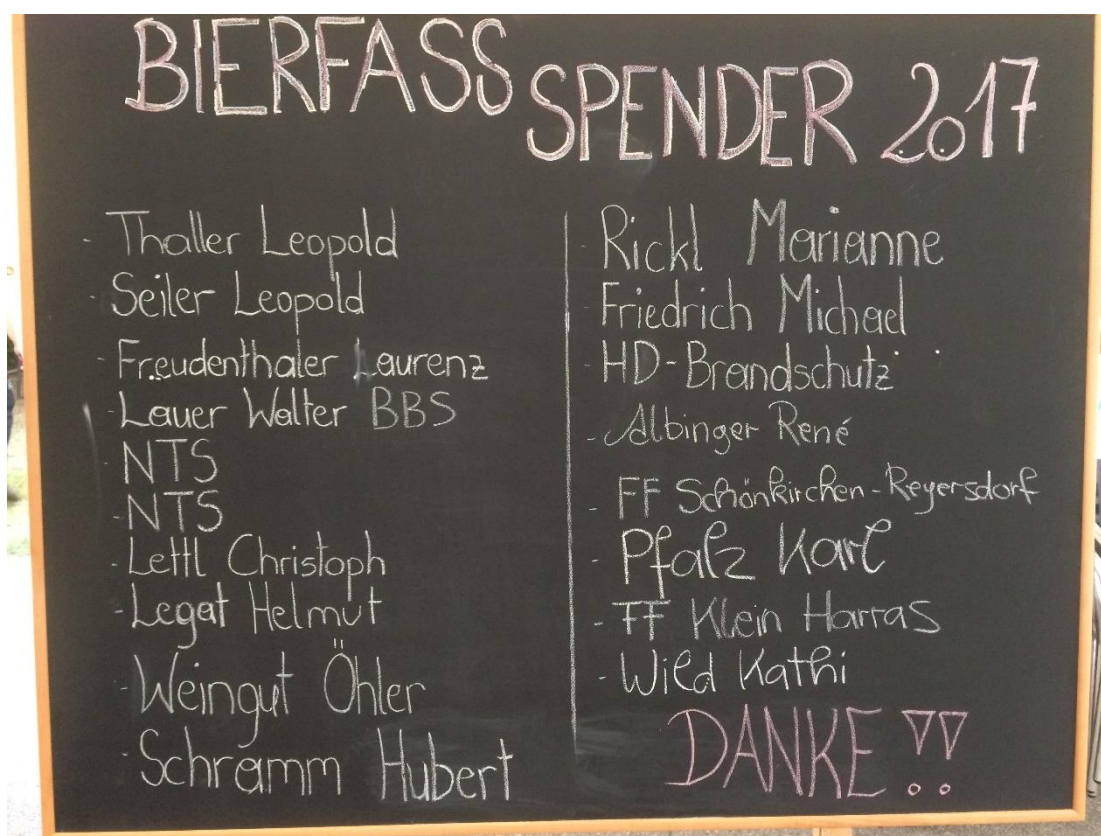 BIERFASS
SPENDER 2017
- Thaller Leopold
- Seiler Leopold
- Freudenthaler Laurenz
- Lauer Walter BBS
- NTS
- NTS
- Lettl Christoph
- Legat Helmut
- Weingut Öhler
- Schramm Hubert
- Rickl Marianne
- Friedrich Michael
- HD-Brandschutz
- Albinger René
- FF Schönkirchen-Reyersdorf
- Pfalz Karl
- FF Klein Harras
- Wild Kathi
DANKE !!